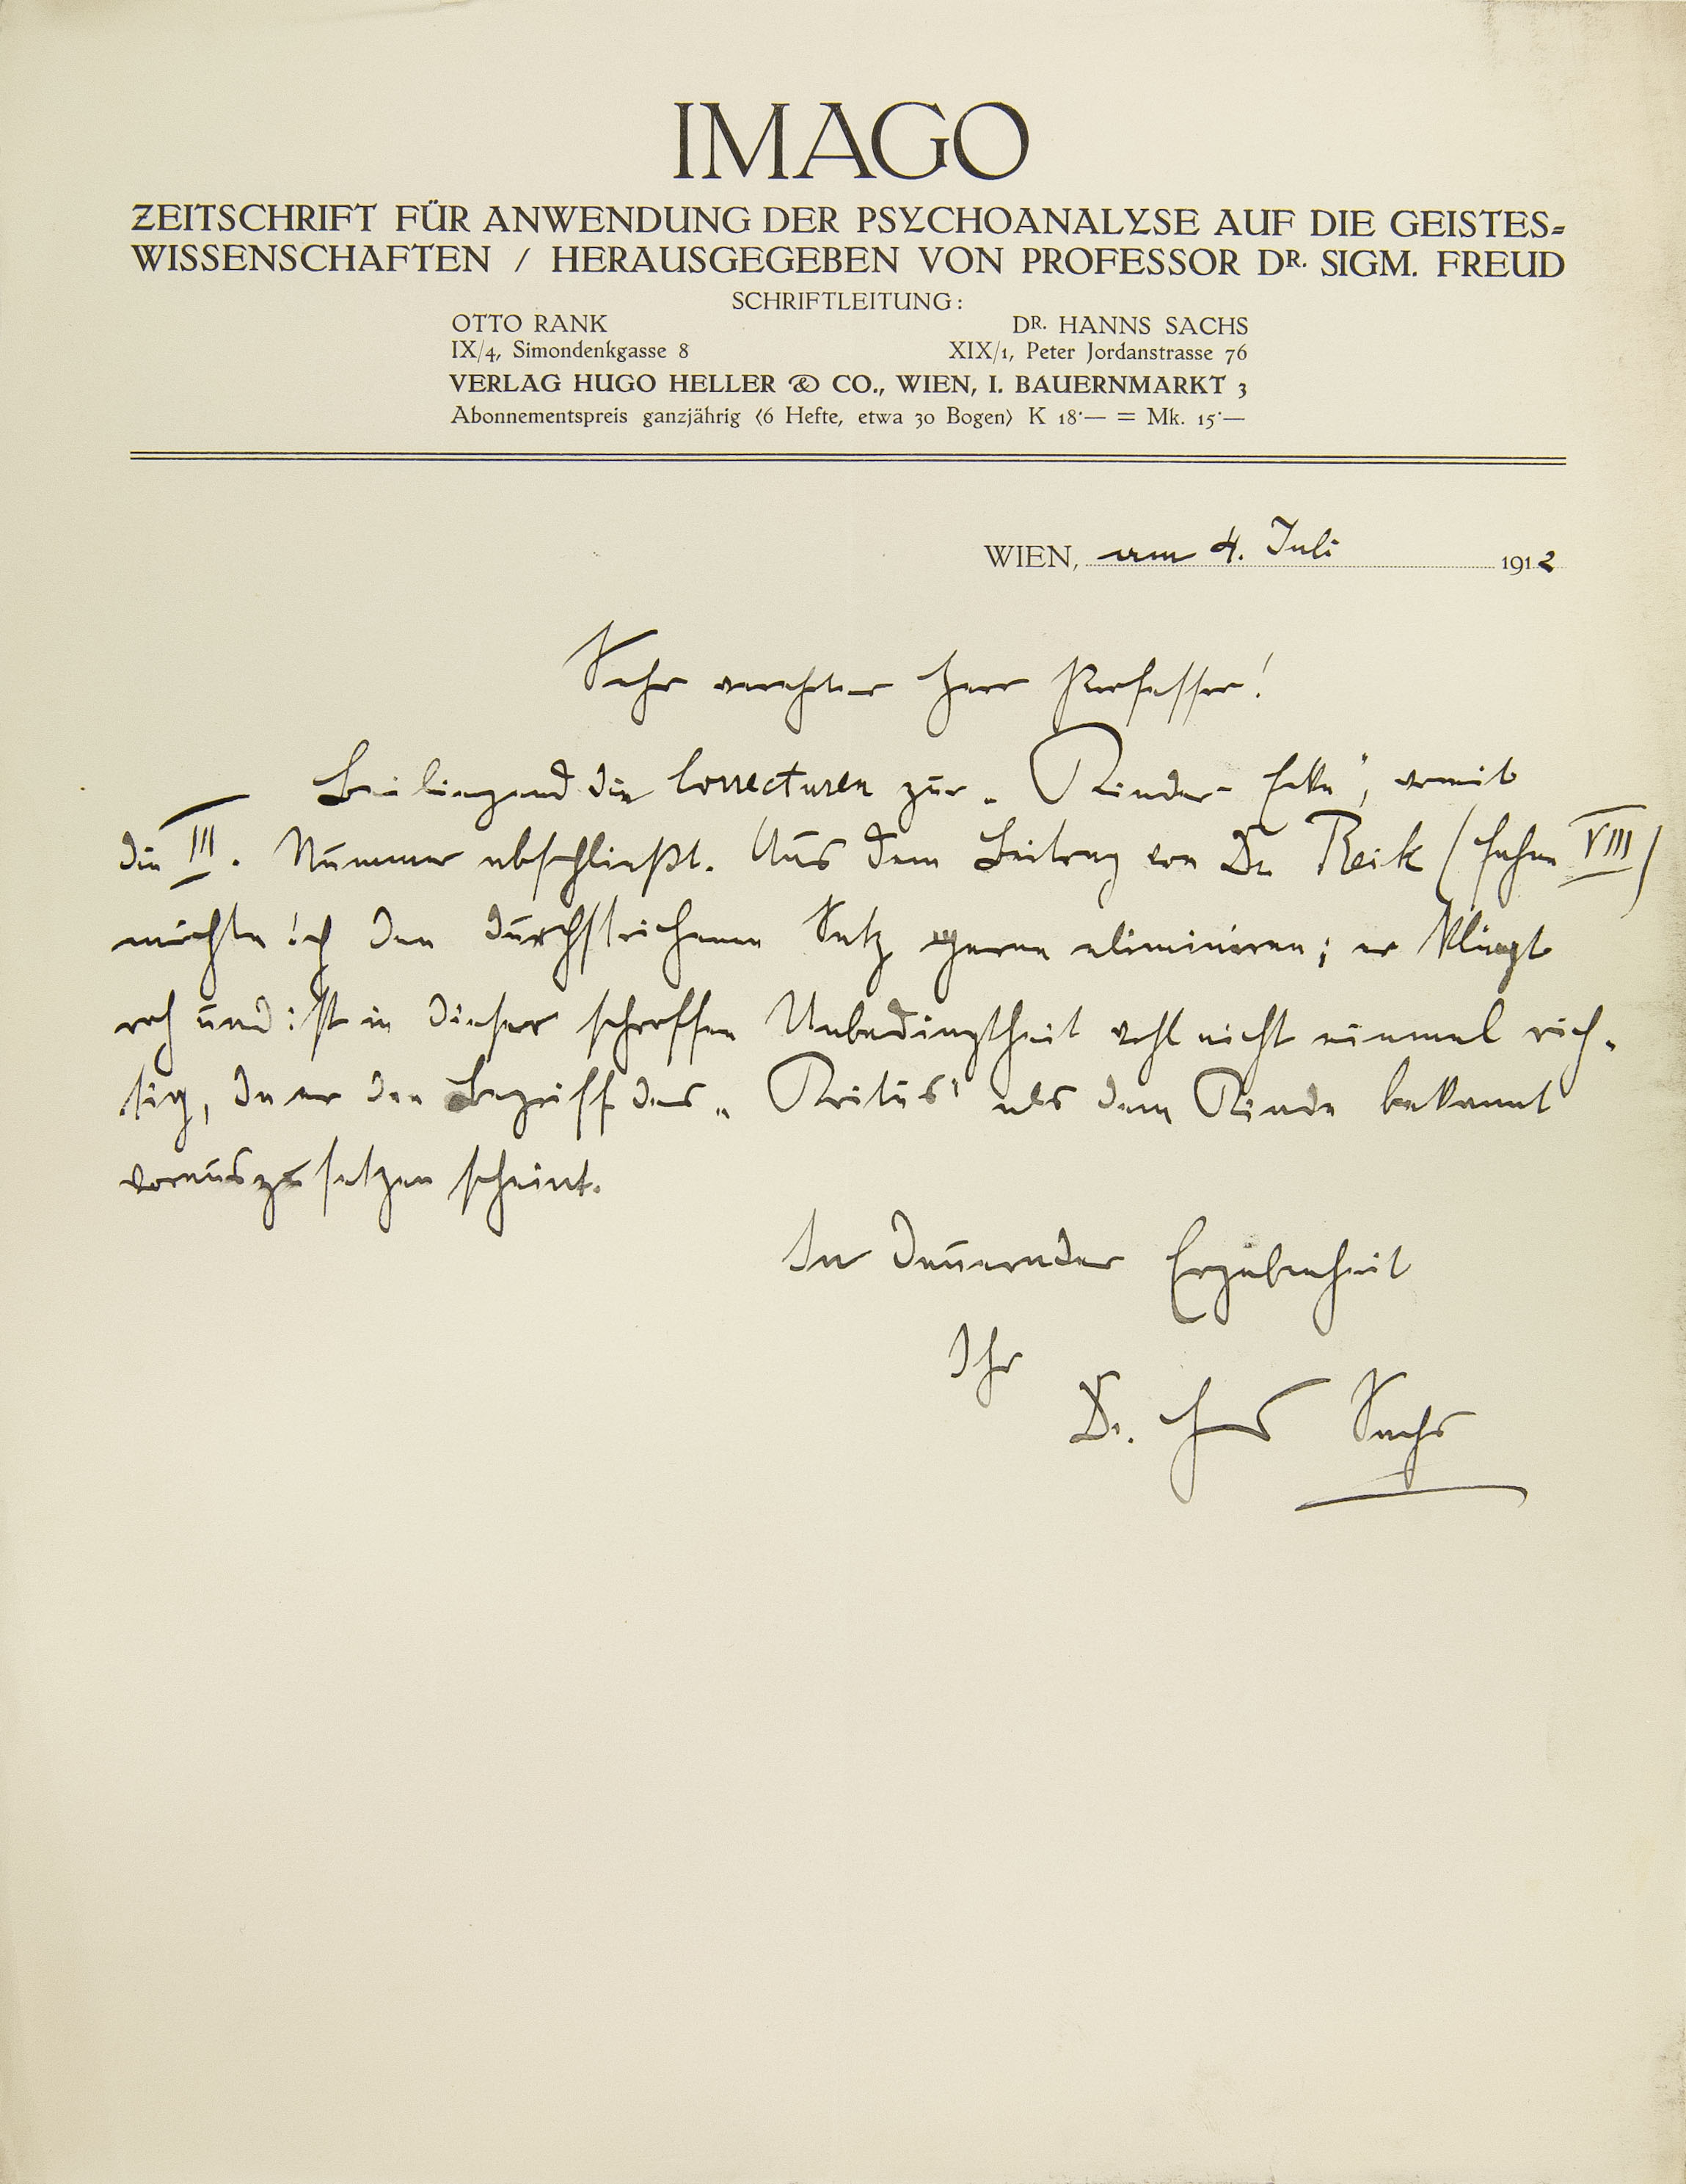 IMAGO
ZEITSCHRIFT FÜR ANWENDUNG DER PSYCHOANALYSE AUF DIE GEISTES=
WISSENSCHAFTEN / HERAUSGEGEBEN VON PROFESSOR DR. SIGM. FREUD
SCHRIFTLEITUNG:
OTTO RANK DR. HANNS SACHS
IX/4, Simondenkgasse 8 XIX/1, Peter Jordanstrasse 76
VERLAG HUGO HELLER & CO., WIEN, I. BAUERNMARKT 3
Abonnementspreis ganzjährig (6 Hefte, etwa 30 Bogen) K 18·— = Mk. 15·—
WIEN, am 4. Juli 1912
Sehr verehrter Herr Professor!
Beiliegend die Correcturen zur „Kinder-Ecke", womit
die III. Nummer abschließt. Aus dem Beitrag von Dr. Reik (Fahne VIII)
möchte ich den durchstrichenen Satz gerne eliminieren; er klingt
roh und ist in dieser schroffen Unbedingtheit wohl nicht einmal rich-
tig, da er den Begriff des „Kritus" als dem Kinde bekannt
vorauszusetzen scheint.
In dauernder Ergebenheit
Ihr
Dr. Hanns Sachs